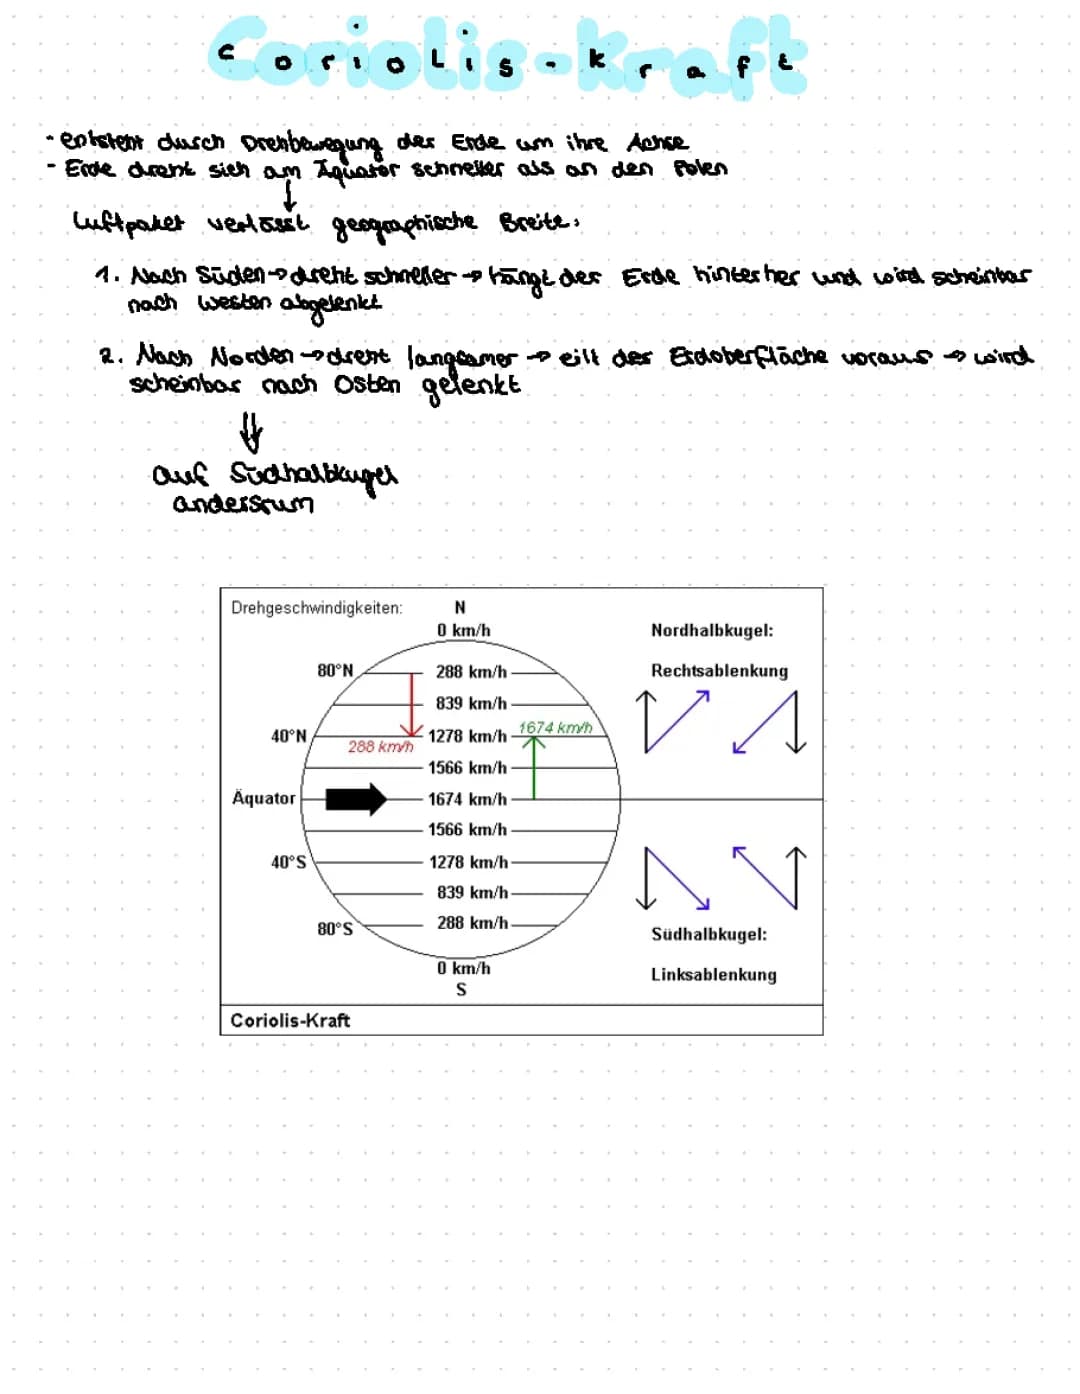 Coriolis-Kraft
- entsteht durch Drehbewegung der Erde um ihre Achse
- Erde dreht sich am Äquator schneller als an den Polen
↓
Luftpaket verlässt geographische Breite:
1. Nach Süden → dreht schneller → hängt der Erde hinterher und wird scheinbar
nach Westen abgelenkt
2. Nach Norden → dreht langsamer → eilt der Erdoberfläche voraus → wird
scheinbar nach Osten gelenkt
⇓
auf Südhalbkugel
andersrum
Drehgeschwindigkeiten:
N
0 km/h
Nordhalbkugel:
80°N
288 km/h
Rechtsablenkung
839 km/h
40°N
288 km/h
1278 km/h
1674 km/h
1566 km/h
Äquator
1674 km/h
1566 km/h
40°S
1278 km/h
839 km/h
80°S
288 km/h
Südhalbkugel:
0 km/h
S
Linksablenkung
Coriolis-Kraft